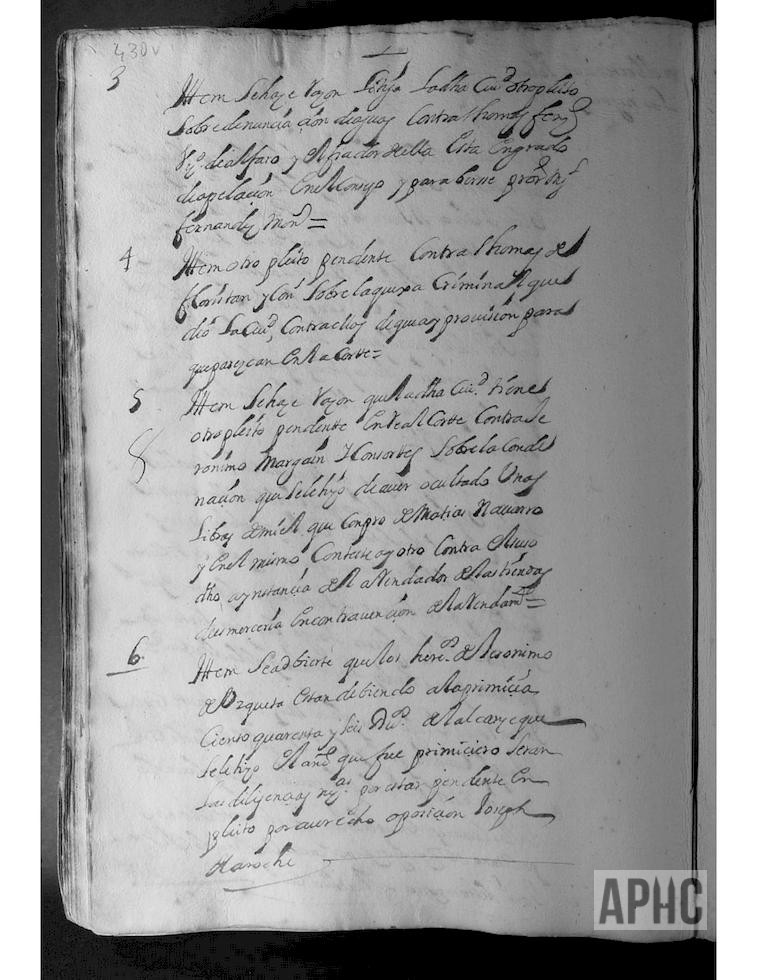 430v
3
Ittem Sehaze Razon Sesiga Ladha Ciud otro pleito
Sobre denunciaçion de aguas Contra thomas ferz
Vzo. de alfaro y Afrador della Esta Engrado
de apelaçion En el Consejo y para berse
fernandez Mond =
4
Ittem otro pleito pendente Contra thomas de
floristan y Con Sobre la quexa Criminal que
dio La Ciud, Contra ellos de guias y provision para
que parezcan En la Corte =
5
Ittem Sehaze Razon que la dha Ciud. tiene
otro pleito pendente En Real Corte Contra Je
ronimo Margain y Consortes Sobre la Conde
nacion que sele hizo de aver ocultado Unas
Libras de miel que Conpro de Matias Navarro
y En el mismo Conteste ay otro Contra el suso
dho a ynstancia del aRendador de las tiendas
de merceria En contravencion de la Rendamo =
6.
Ittem Se adbierte que los hero. de Jeronimo
de Orqueta Estan debiendo a la primicia
Ciento quarenta y seis Du.o del alcanze que
Sele hizo el año que fue primiciero Seran
Las diligencias por estar pendente En
pleito por aver echo oposicion Joseph
Laroche
APHC